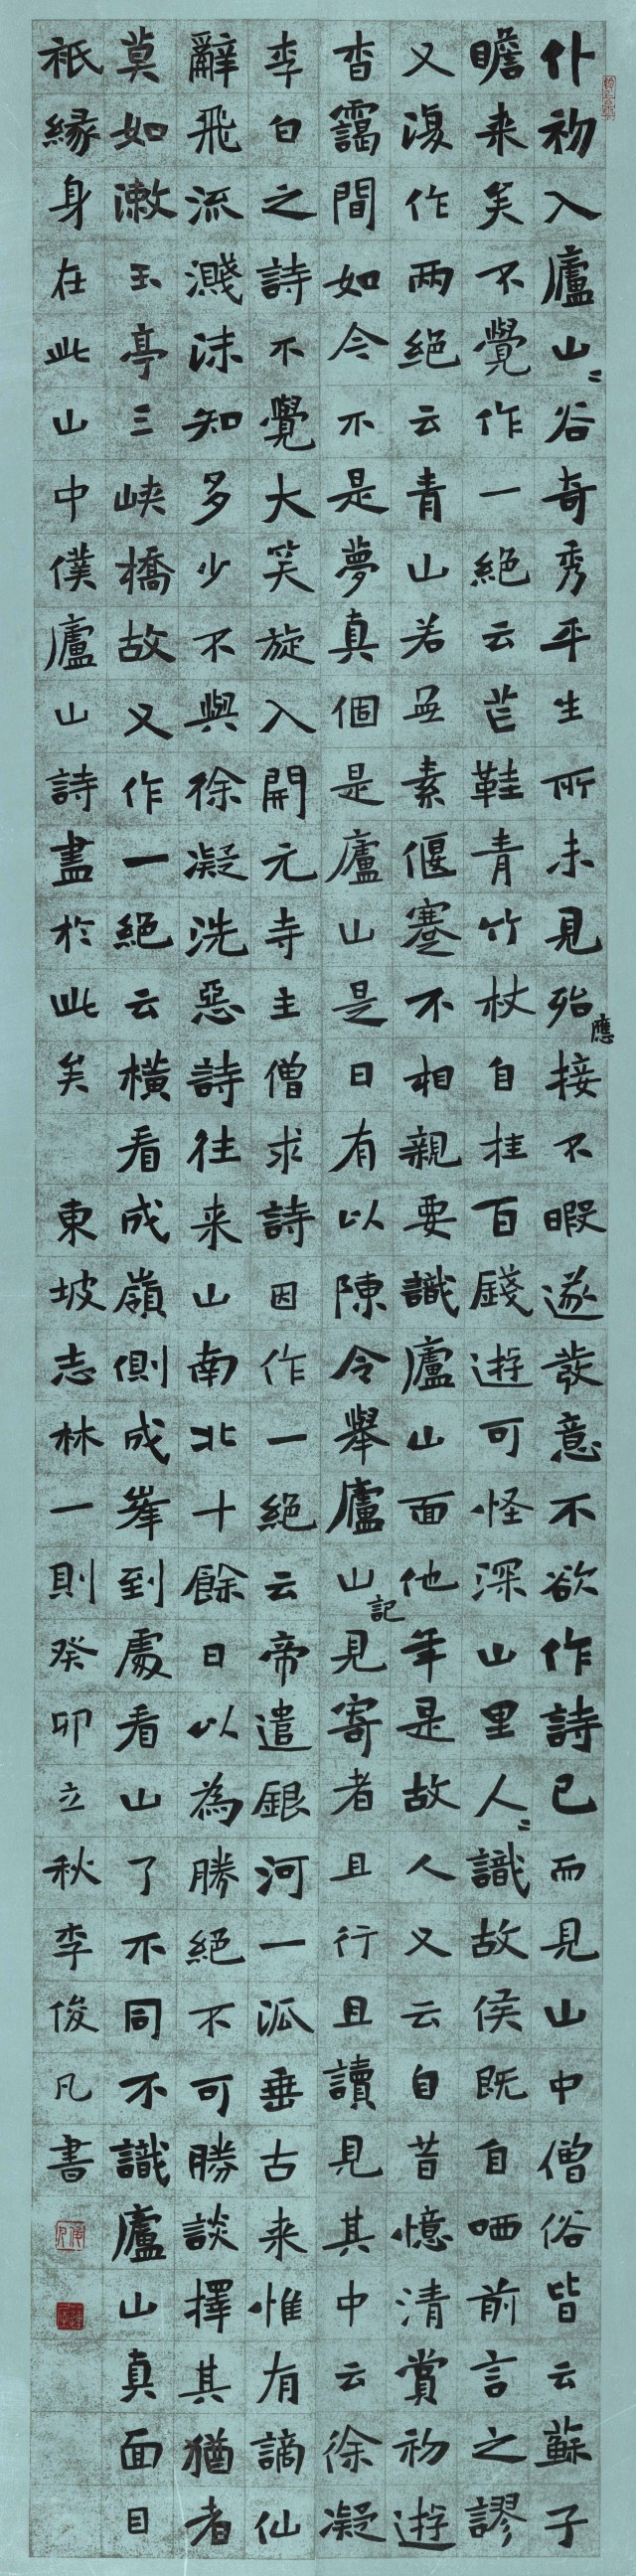 仆初入廬山〻谷奇秀平生所未見殆應接不暇遂發意不欲作詩已而見山中僧俗皆云蘇子
瞻来矣不覺作一絕云芒鞋青竹杖自挂百錢遊可怪深山里人〻識故侯既自哂前言之謬
又復作兩絕云青山若無素偃蹇不相親要識廬山面他年是故人又云自昔憶清賞初遊
杳靄間如今不是夢真個是廬山是日有以陳令舉廬山記見寄者且行且讀見其中云徐凝
李白之詩不覺大笑旋入開元寺主僧求詩因作一絕云帝遣銀河一派垂古来惟有謫仙
辭飛流濺沫知多少不與徐凝洗惡詩往来山南北十餘日以為勝絕不可勝談擇其猶者
莫如漱玉亭三峽橋故又作一絕云橫看成嶺側成峯到處看山了不同不識廬山真面目
衹緣身在此山中僕廬山詩盡於此矣 東坡志林一則癸卯立秋李俊凡書